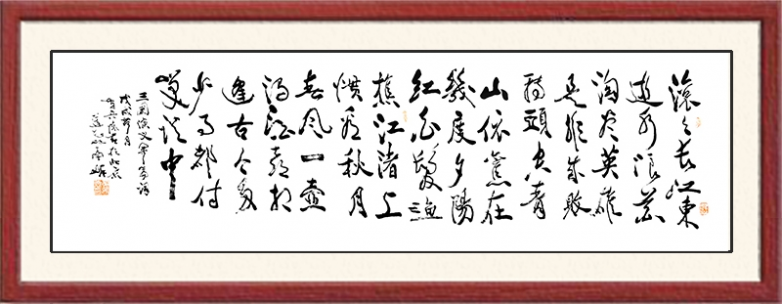 滚々长江東
逝水浪花
淘尽英雄
是非成败
转頭空青
山依舊在
幾度夕陽
红白髮渔
樵江渚上
惯看秋月
春风一壶
浊酒喜相
逢古今多
少事都付
笑谈中
三国演义
戊戌年月